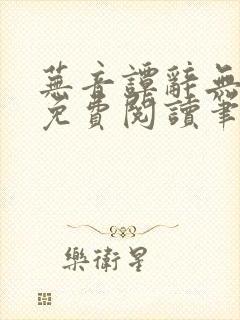 蕪音譚辭無
免費閱讀筆
樂衛星